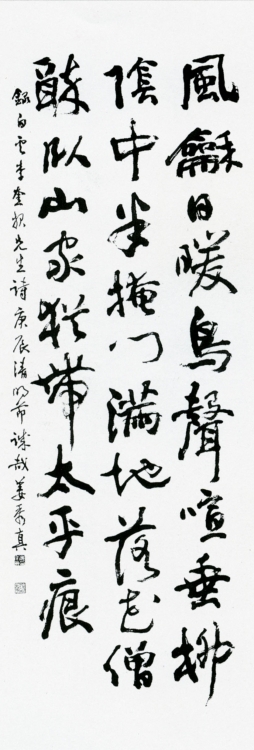 風龢日暖鳥聲喧垂柳
陰中半掩門滿地落花僧
醉臥山家猶帶太平痕
錄白雲李奎報先生詩庚辰清明節 哉姜 真